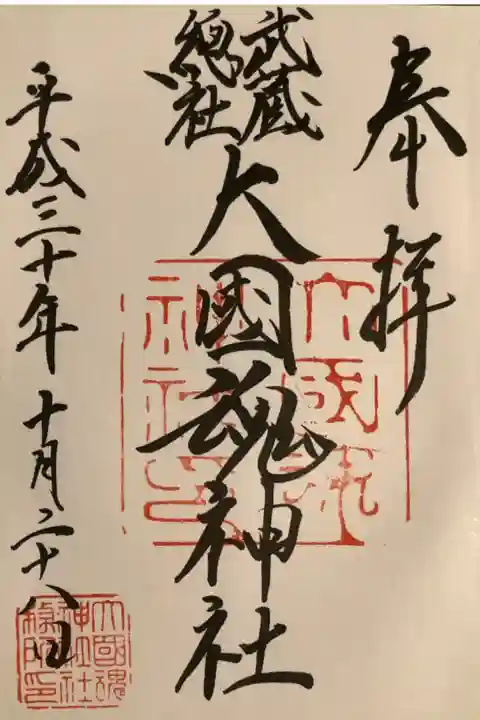 奉拝
武蔵
総社
大國魂神社
平成三十年十月二十八日
大國魂
神社